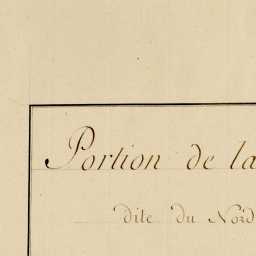 Portion de la
dite du Nord